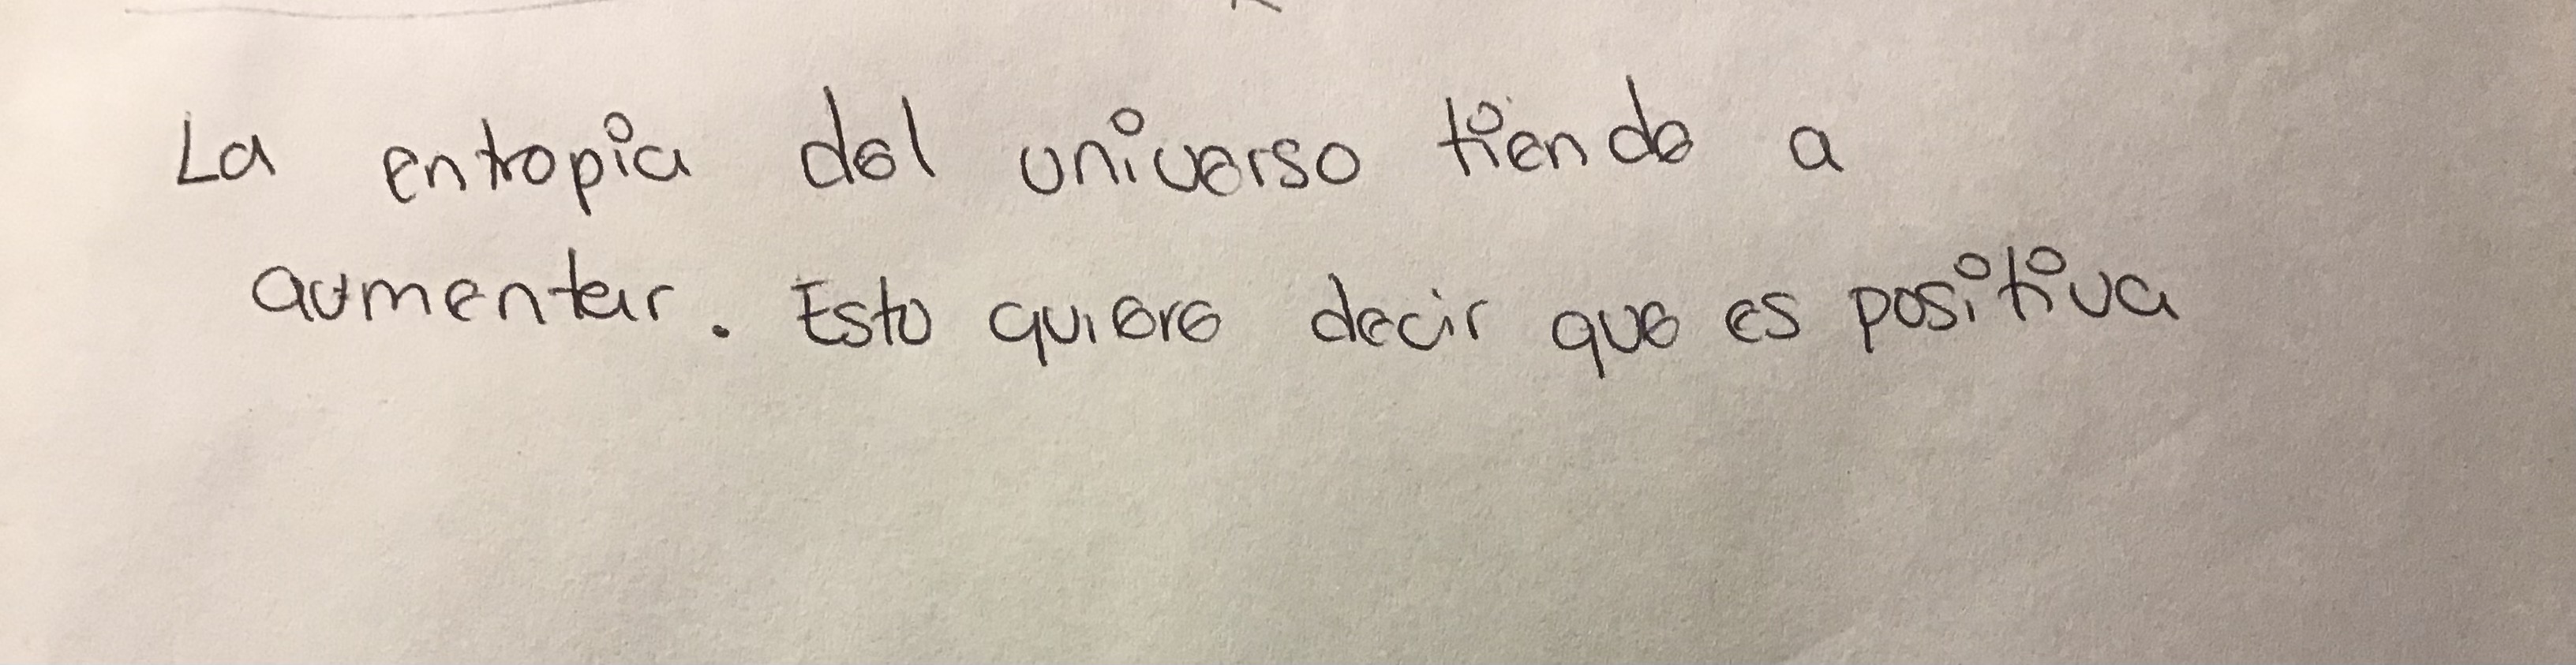 La entropia del universo tiende a
aumentar. Esto quiere decir que es positiva